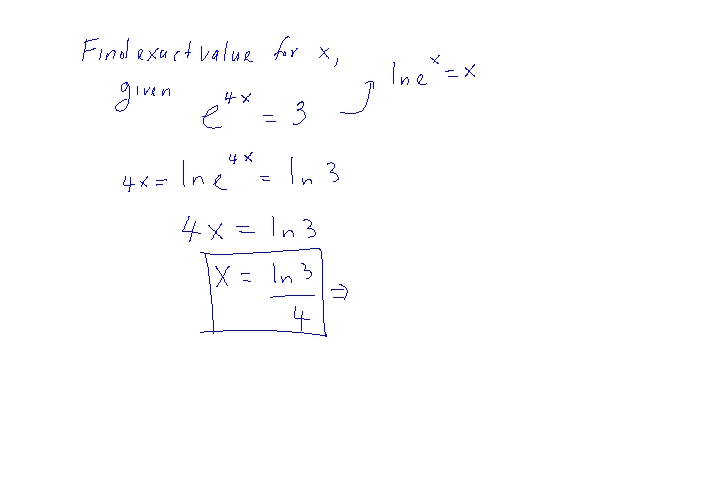 Find exact value for x,
given e^{4x} = 3 ln e^x = x
4x = ln e^{4x} = ln 3
4x = ln 3
x = \frac{ln 3}{4} ⇒